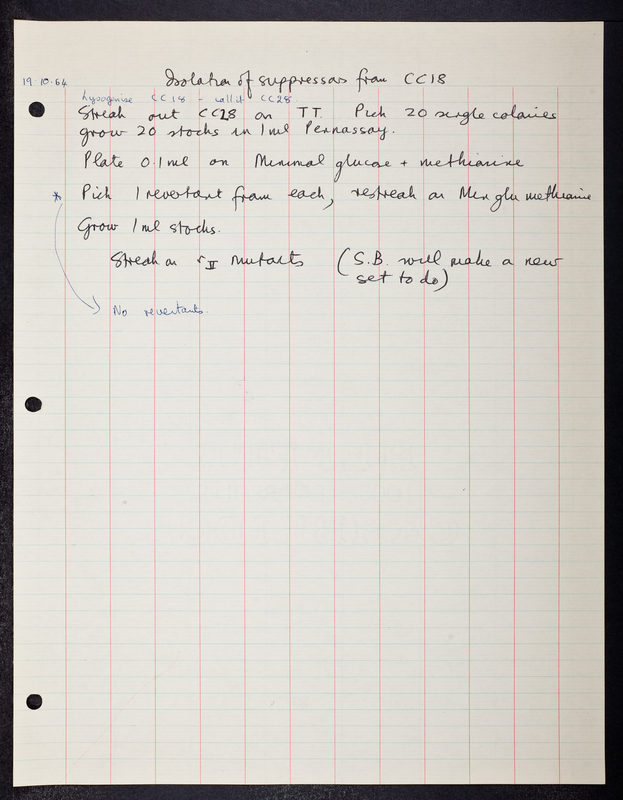 19.10.64 Isolation of suppressors from CC18
lysogenise CC18 - call it CC28
Streak out CC28 on TT. Pick 20 single colonies
grow 20 stocks in 1ml Pennassay.
Plate 0.1ml on Minimal glucose + methionine
* Pick 1 revertant from each, restreak on Min glu methionine
Grow 1ml stocks.
Streak on rII mutants (S.B. will make a new
set to do)
No revertants.